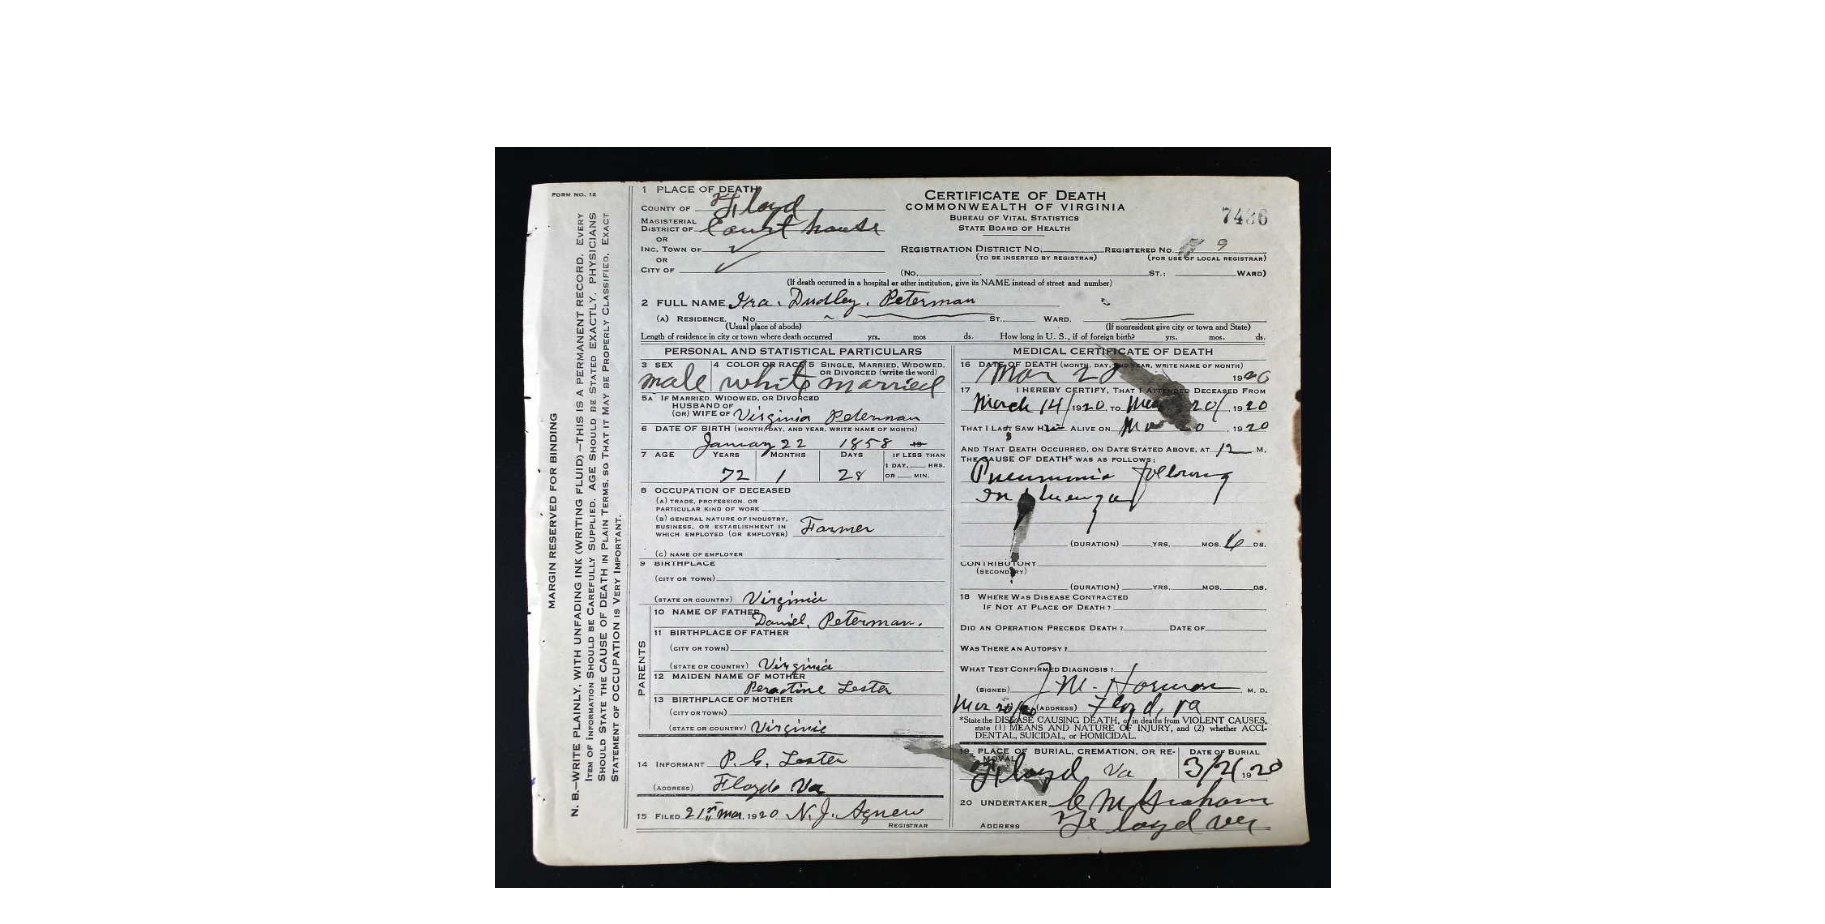 FORM NO. 12
MARGIN RESERVED FOR BINDING
N. B.—WRITE PLAINLY, WITH UNFADING INK (WRITING FLUID)—THIS IS A PERMANENT RECORD. EVERY
ITEM OF INFORMATION SHOULD BE CAREFULLY SUPPLIED. AGE SHOULD BE STATED EXACTLY. PHYSICIANS
SHOULD STATE THE CAUSE OF DEATH IN PLAIN TERMS, SO THAT IT MAY BE PROPERLY CLASSIFIED. EXACT
STATEMENT OF OCCUPATION IS VERY IMPORTANT.
CERTIFICATE OF DEATH
COMMONWEALTH OF VIRGINIA
BUREAU OF VITAL STATISTICS
STATE BOARD OF HEALTH
7436
1 PLACE OF DEATH
COUNTY OF Floyd
MAGISTERIAL
DISTRICT OF Court house
OR
INC. TOWN OF
OR
CITY OF
REGISTRATION DISTRICT NO. REGISTERED NO. 9
(TO BE INSERTED BY REGISTRAR) (FOR USE OF LOCAL REGISTRAR)
(NO. ST.; WARD)
(If death occurred in a hospital or other institution, give its NAME instead of street and number)
2 FULL NAME Ira. Dudley. Peterman
(A) RESIDENCE. NO. ST. WARD.
(Usual place of abode) (If nonresident give city or town and State)
Length of residence in city or town where death occurred yrs. mos ds. How long in U. S., if of foreign birth? yrs. mos. ds.
PERSONAL AND STATISTICAL PARTICULARS
3 SEX 4 COLOR OR RACE 5 SINGLE, MARRIED, WIDOWED,
OR DIVORCED (write the word)
male white married
5A IF MARRIED, WIDOWED, OR DIVORCED
HUSBAND OF
(OR) WIFE OF Virginia Peterman
6 DATE OF BIRTH (MONTH, DAY, AND YEAR, WRITE NAME OF MONTH)
January 22 1858
7 AGE YEARS MONTHS DAYS IF LESS THAN
1 DAY, HRS.
72 1 28 OR MIN.
8 OCCUPATION OF DECEASED
(A) TRADE, PROFESSION, OR
PARTICULAR KIND OF WORK
(B) GENERAL NATURE OF INDUSTRY,
BUSINESS, OR ESTABLISHMENT IN
WHICH EMPLOYED (OR EMPLOYER) Farmer
(C) NAME OF EMPLOYER
9 BIRTHPLACE
(CITY OR TOWN)
(STATE OR COUNTRY) Virginia
PARENTS
10 NAME OF FATHER
Daniel. Peterman.
11 BIRTHPLACE OF FATHER
(CITY OR TOWN)
(STATE OR COUNTRY) Virginia
12 MAIDEN NAME OF MOTHER
Lester
13 BIRTHPLACE OF MOTHER
(CITY OR TOWN)
(STATE OR COUNTRY) Virginia
14 INFORMANT P. G. Lester
(ADDRESS) Floyd Va
15 FILED 21st Mar. 1920 N. J. Agnew
REGISTRAR
MEDICAL CERTIFICATE OF DEATH
16 DATE OF DEATH (MONTH, DAY, AND YEAR, WRITE NAME OF MONTH)
Mar 20 1920
17 I HEREBY CERTIFY, THAT I ATTENDED DECEASED FROM
March 14/ 1920, TO Mar 20/, 1920
THAT I LAST SAW Him ALIVE ON Mar 20, 1920
AND THAT DEATH OCCURRED, ON DATE STATED ABOVE, AT 12 M.
THE CAUSE OF DEATH* WAS AS FOLLOWS:
Pneumonia following
Influenza
(DURATION) YRS. MOS. 6 DS.
CONTRIBUTORY
(SECONDARY)
(DURATION) YRS. MOS. DS.
18 WHERE WAS DISEASE CONTRACTED
IF NOT AT PLACE OF DEATH?
DID AN OPERATION PRECEDE DEATH? DATE OF
WAS THERE AN AUTOPSY?
WHAT TEST CONFIRMED DIAGNOSIS?
(SIGNED) J. M. M. D.
Mar 20/20 (ADDRESS) Floyd, Va
*State the DISEASE CAUSING DEATH, or in deaths from VIOLENT CAUSES,
state (1) MEANS AND NATURE OF INJURY, and (2) whether ACCI-
DENTAL, SUICIDAL, or HOMICIDAL.
19 PLACE OF BURIAL, CREMATION, OR RE- DATE OF BURIAL
MOVAL
Floyd Va 3/21 1920
20 UNDERTAKER C M Graham
ADDRESS Floyd Va